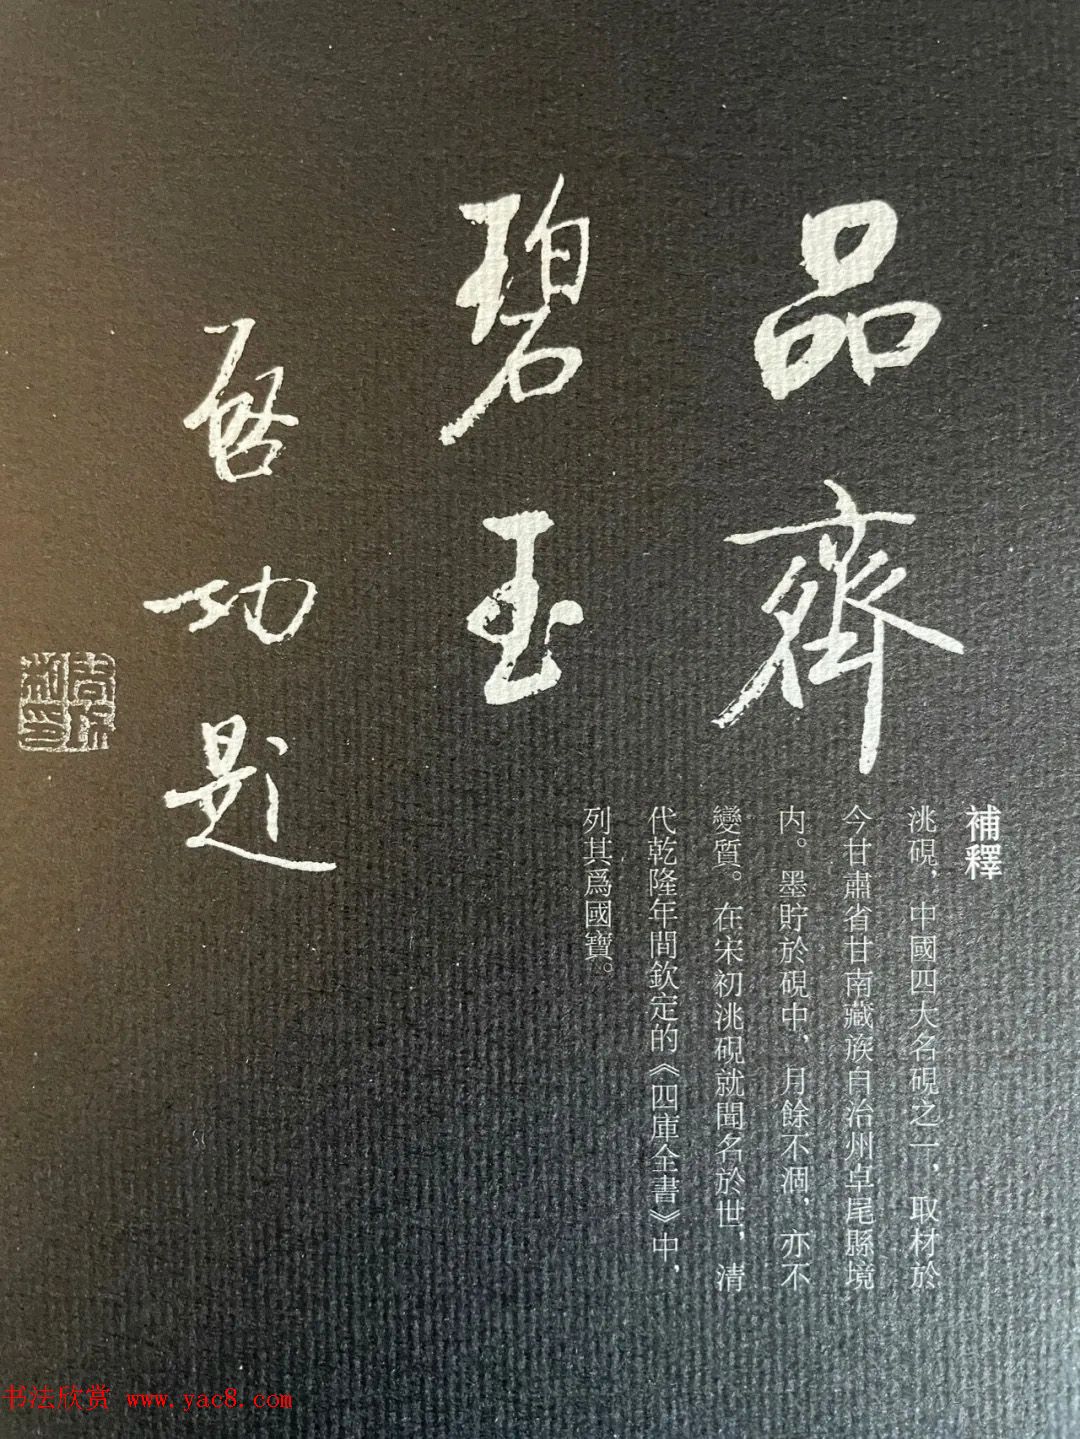 品齊
碧玉
啟功題
補釋
洮硯，中國四大名硯之一，取材於
今甘肅省甘南藏族自治州卓尾縣境
内。墨貯於硯中，月餘不涸，亦不
變質。在宋初洮硯就聞名於世，清
代乾隆年間欽定的《四庫全書》中，
列其爲國寶。
书法欣赏 www.yac8.com